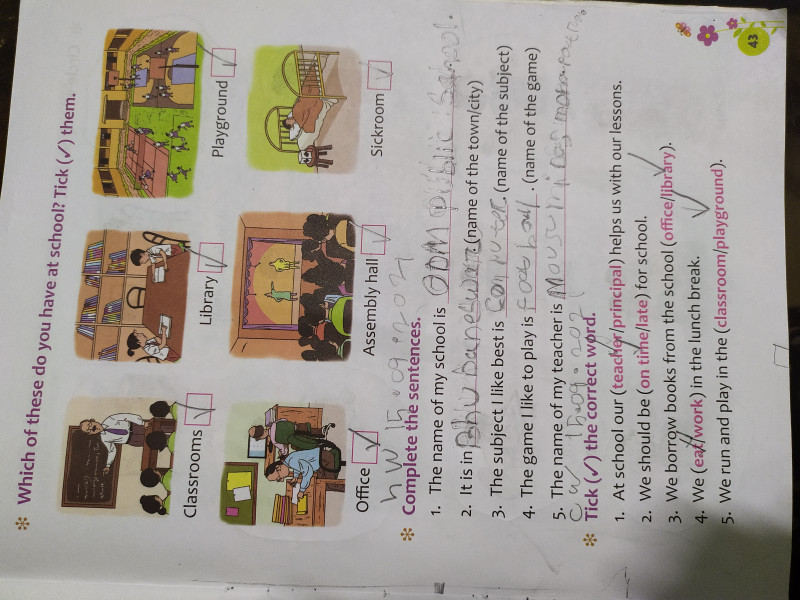 ✻ Which of these do you have at school? Tick (✓) them.
Classrooms ✓ Library ✓ Playground ✓
Office ✓ Assembly hall ✓ Sickroom ✓
HW 15.09.2021
✻ Complete the sentences.
1. The name of my school is ODM public school.
2. It is in Bhubaneswar (name of the town/city)
3. The subject I like best is computer. (name of the subject)
4. The game I like to play is Foot ball. (name of the game)
5. The name of my teacher is Mousumi
CW 15.09.2021
✻ Tick (✓) the correct word.
1. At school our (teacher/principal) helps us with our lessons.
2. We should be (on time/late) for school.
3. We borrow books from the school (office/library).
4. We (eat/work) in the lunch break.
5. We run and play in the (classroom/playground).
43